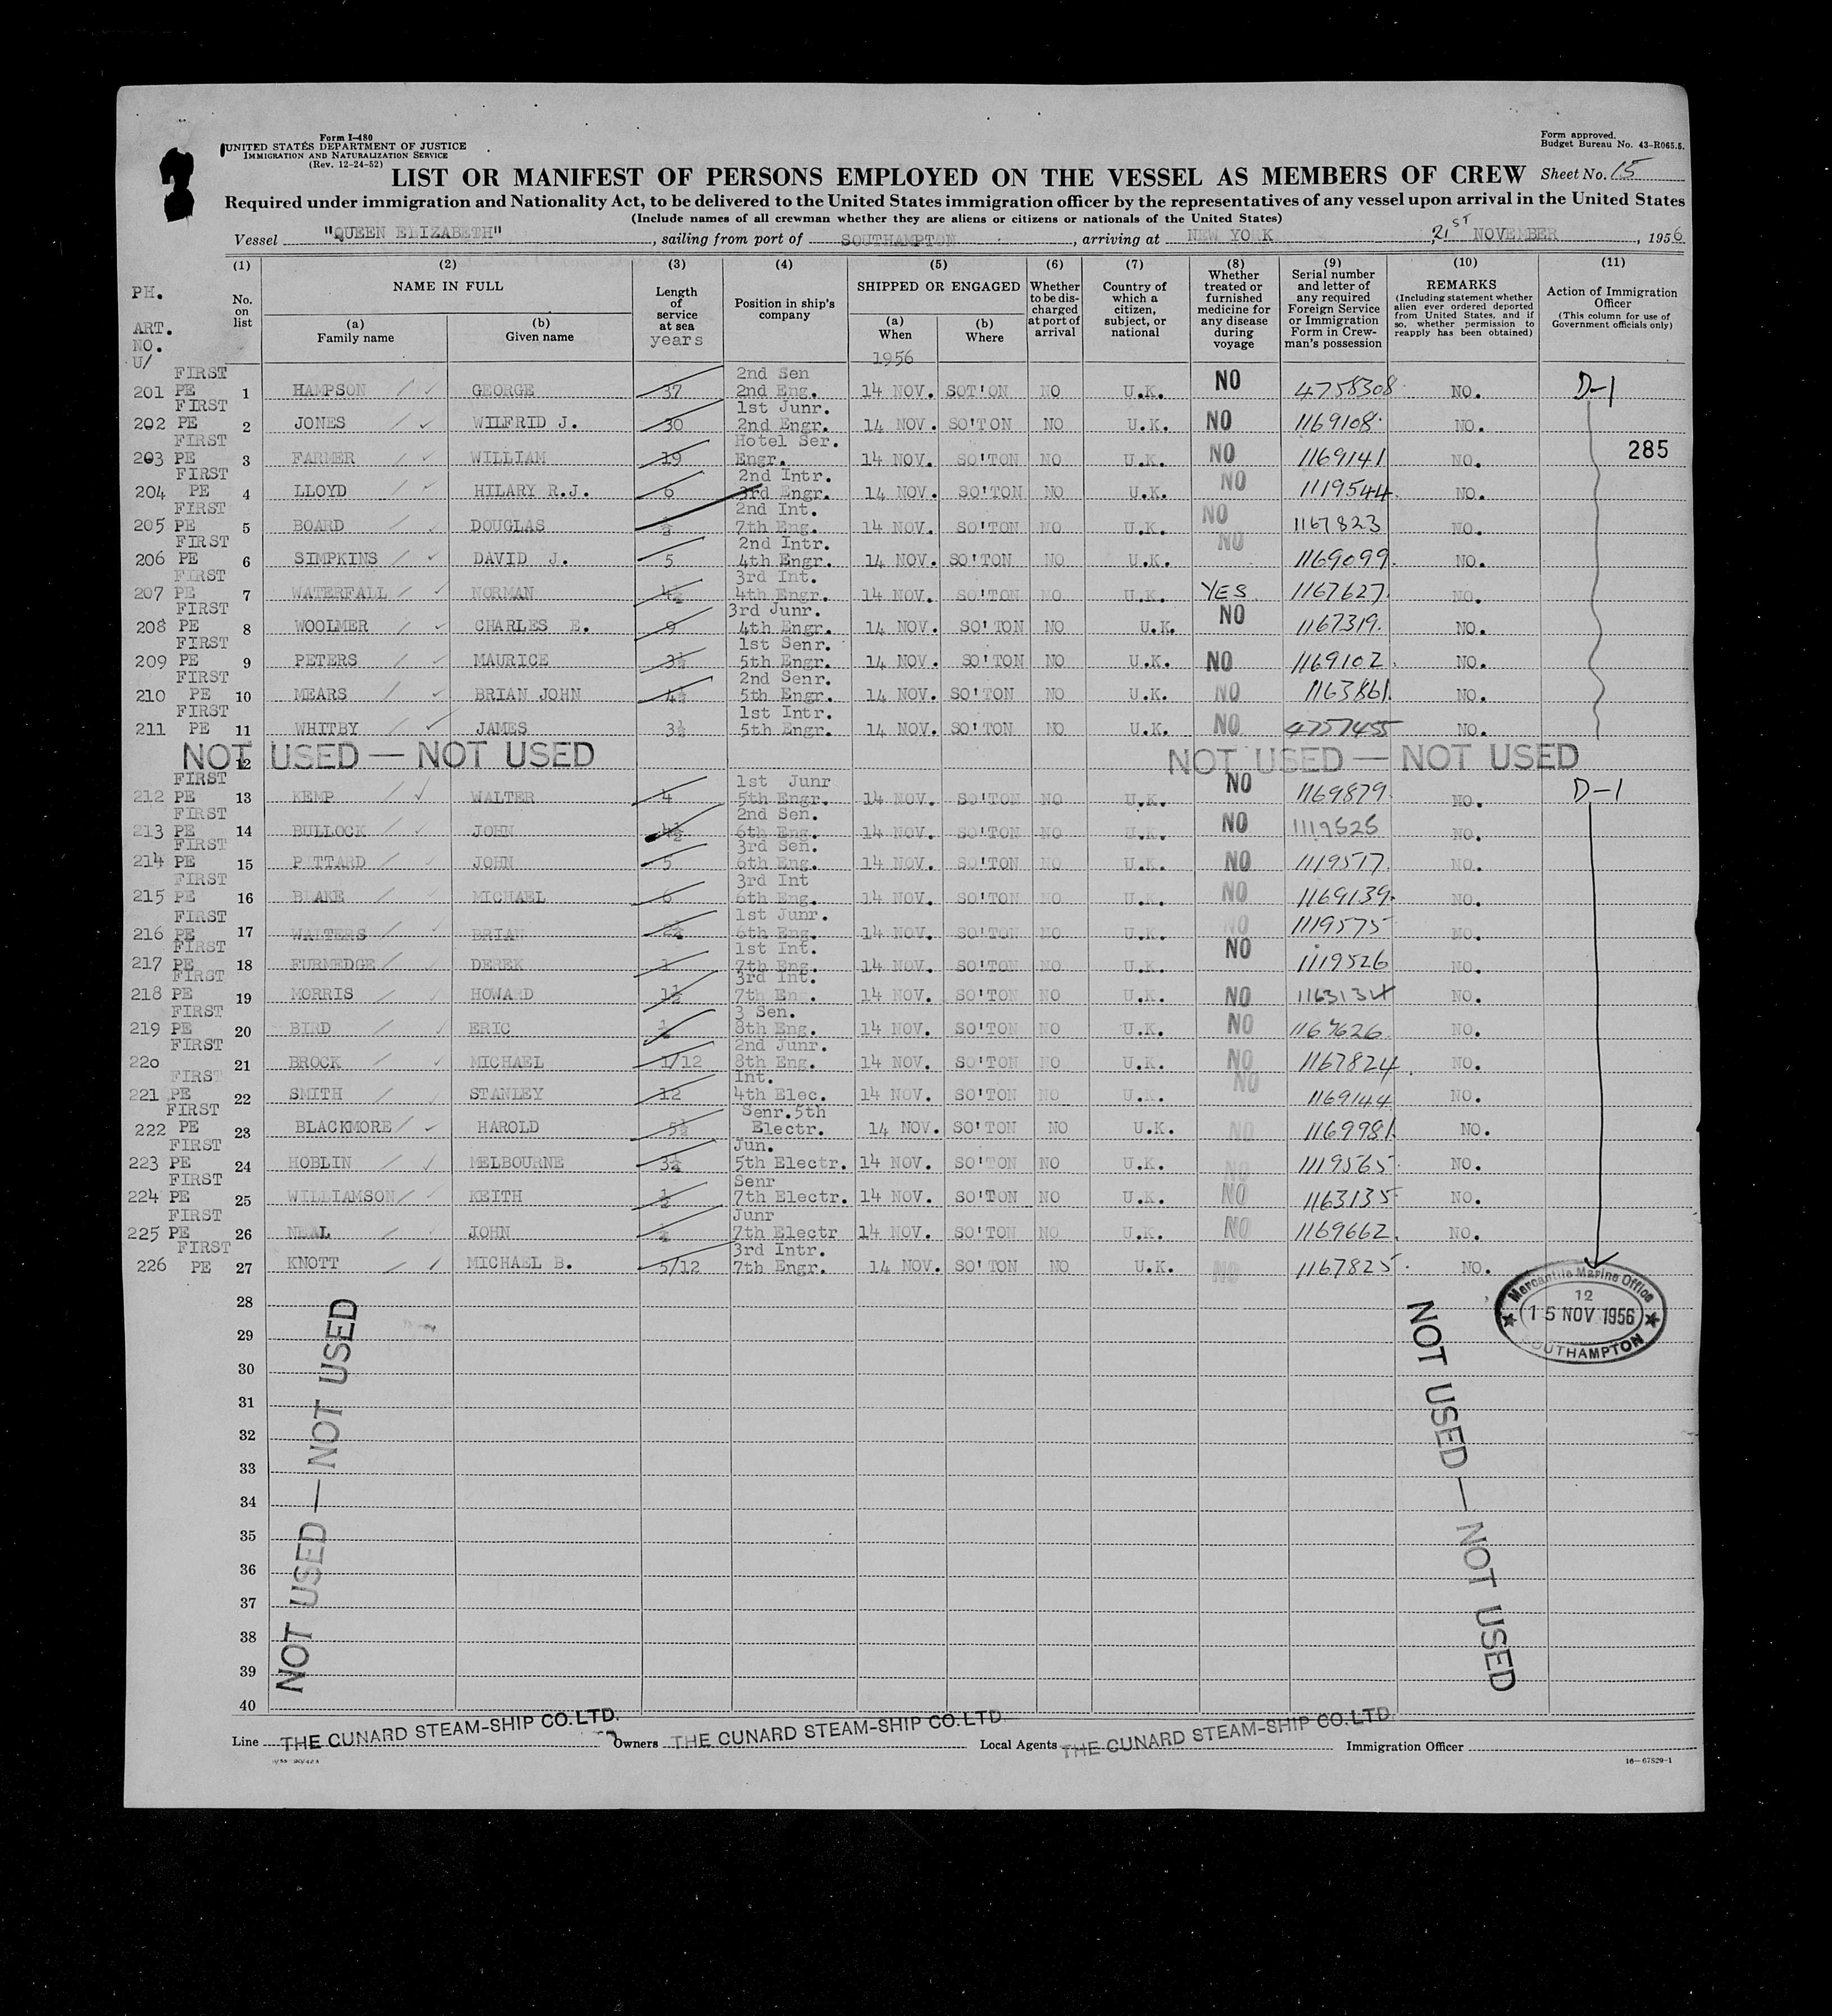 Form I-480
UNITED STATES DEPARTMENT OF JUSTICE
IMMIGRATION AND NATURALIZATION SERVICE
(Rev. 12-24-52)
Form approved.
Budget Bureau No. 43-R065.5.
LIST OR MANIFEST OF PERSONS EMPLOYED ON THE VESSEL AS MEMBERS OF CREW Sheet No. 15
Required under immigration and Nationality Act, to be delivered to the United States immigration officer by the representatives of any vessel upon arrival in the United States
(Include names of all crewman whether they are aliens or citizens or nationals of the United States)
Vessel "QUEEN ELIZABETH", sailing from port of SOUTHAMPTON, arriving at NEW YORK, 21ST NOVEMBER, 1956
(1) (2) (3) (4) (5) (6) (7) (8) (9) (10) (11)
PH.
ART.
NO.
U/
No. on list
NAME IN FULL
(a) Family name
(b) Given name
Length of service at sea
years
Position in ship's company
SHIPPED OR ENGAGED
(a) When
1956
(b) Where
Whether to be discharged at port of arrival
Country of which a citizen, subject, or national
Whether treated or furnished medicine for any disease during voyage
Serial number and letter of any required Foreign Service or Immigration Form in Crewman's possession
REMARKS
(Including statement whether alien ever ordered deported from United States, and if so, whether permission to reapply has been obtained)
Action of Immigration Officer
(This column for use of Government officials only)
FIRST 2nd Sen
201 PE 1 HAMPSON GEORGE 37 2nd Eng. 14 NOV. SOT'ON NO U.K. NO 4758308 NO. D-1
FIRST 1st Junr.
202 PE 2 JONES WILFRID J. 30 2nd Engr. 14 NOV. SO'TON NO U.K. NO 1169108 NO.
FIRST Hotel Ser.
203 PE 3 FARMER WILLIAM 19 Engr. 14 NOV. SO'TON NO U.K. NO 1169141 NO. 285
FIRST 2nd Intr.
204 PE 4 LLOYD HILARY R.J. 6 3rd Engr. 14 NOV. SO'TON NO U.K. NO 1119544 NO.
FIRST 2nd Int.
205 PE 5 BOARD DOUGLAS ½ 7th Eng. 14 NOV. SO'TON NO U.K. NO 1167823 NO.
FIRST 2nd Intr.
206 PE 6 SIMPKINS DAVID J. 5 4th Engr. 14 NOV. SO'TON NO U.K. NO 1169099 NO.
FIRST 3rd Int.
207 PE 7 WATERFALL NORMAN 4½ 4th Engr. 14 NOV. SO'TON NO U.K. YES 1167627 NO.
FIRST 3rd Junr.
208 PE 8 WOOLMER CHARLES E. 9 4th Engr. 14 NOV. SO'TON NO U.K. NO 1167319 NO.
FIRST 1st Senr.
209 PE 9 PETERS MAURICE 3½ 5th Engr. 14 NOV. SO'TON NO U.K. NO 1169102 NO.
FIRST 2nd Senr.
210 PE 10 MEARS BRIAN JOHN 4½ 5th Engr. 14 NOV. SO'TON NO U.K. NO 1163861 NO.
FIRST 1st Intr.
211 PE 11 WHITBY JAMES 3½ 5th Engr. 14 NOV. SO'TON NO U.K. NO 4757455 NO.
12 NOT USED — NOT USED NOT USED — NOT USED
FIRST 1st Junr
212 PE 13 KEMP WALTER 4 5th Engr. 14 NOV. SO'TON NO U.K. NO 1169879 NO. D-1
FIRST 2nd Sen.
213 PE 14 BULLOCK JOHN 4½ 6th Eng. 14 NOV. SO'TON NO U.K. NO 1119525 NO.
FIRST 3rd Sen.
214 PE 15 PITTARD JOHN 5 6th Eng. 14 NOV. SO'TON NO U.K. NO 1119517 NO.
FIRST 3rd Int
215 PE 16 BLAKE MICHAEL 6 6th Eng. 14 NOV. SO'TON NO U.K. NO 1169139 NO.
FIRST 1st Junr.
216 PE 17 WALTERS BRIAN 2¼ 6th Eng. 14 NOV. SO'TON NO U.K. NO 1119575 NO.
FIRST 1st Int.
217 PE 18 FURMEDGE DEREK 1 7th Eng. 14 NOV. SO'TON NO U.K. NO 1119526 NO.
FIRST 3rd Int.
218 PE 19 MORRIS HOWARD 1½ 7th Eng. 14 NOV. SO'TON NO U.K. NO 1163134 NO.
FIRST 3 Sen.
219 PE 20 BIRD ERIC ½ 8th Eng. 14 NOV. SO'TON NO U.K. NO 1167626 NO.
FIRST 2nd Junr.
220 21 BROCK MICHAEL 1/12 8th Eng. 14 NOV. SO'TON NO U.K. NO 1167824 NO.
FIRST Int.
221 PE 22 SMITH STANLEY 12 4th Elec. 14 NOV. SO'TON NO U.K. NO 1169144 NO.
FIRST Senr. 5th
222 PE 23 BLACKMORE HAROLD 5½ Electr. 14 NOV. SO'TON NO U.K. NO 1169981 NO.
FIRST Jun.
223 PE 24 HOBLIN MELBOURNE 3¼ 5th Electr. 14 NOV. SO'TON NO U.K. NO 1119565 NO.
FIRST Senr
224 PE 25 WILLIAMSON KEITH ½ 7th Electr. 14 NOV. SO'TON NO U.K. NO 1163135 NO.
FIRST Junr
225 PE 26 NEAL JOHN ¼ 7th Electr 14 NOV. SO'TON NO U.K. NO 1169662 NO.
FIRST 3rd Intr.
226 PE 27 KNOTT MICHAEL B. 5/12 7th Engr. 14 NOV. SO'TON NO U.K. NO 1167825 NO.
Mercantile Marine Office
12
15 NOV 1956
SOUTHAMPTON
28
29
30
31
32
33
34
35
36
37
38
39
40
NOT USED — NOT USED
NOT USED — NOT USED
Line THE CUNARD STEAM-SHIP CO. LTD. Owners THE CUNARD STEAM-SHIP CO. LTD. Local Agents THE CUNARD STEAM-SHIP CO. LTD. Immigration Officer
16—67829-1